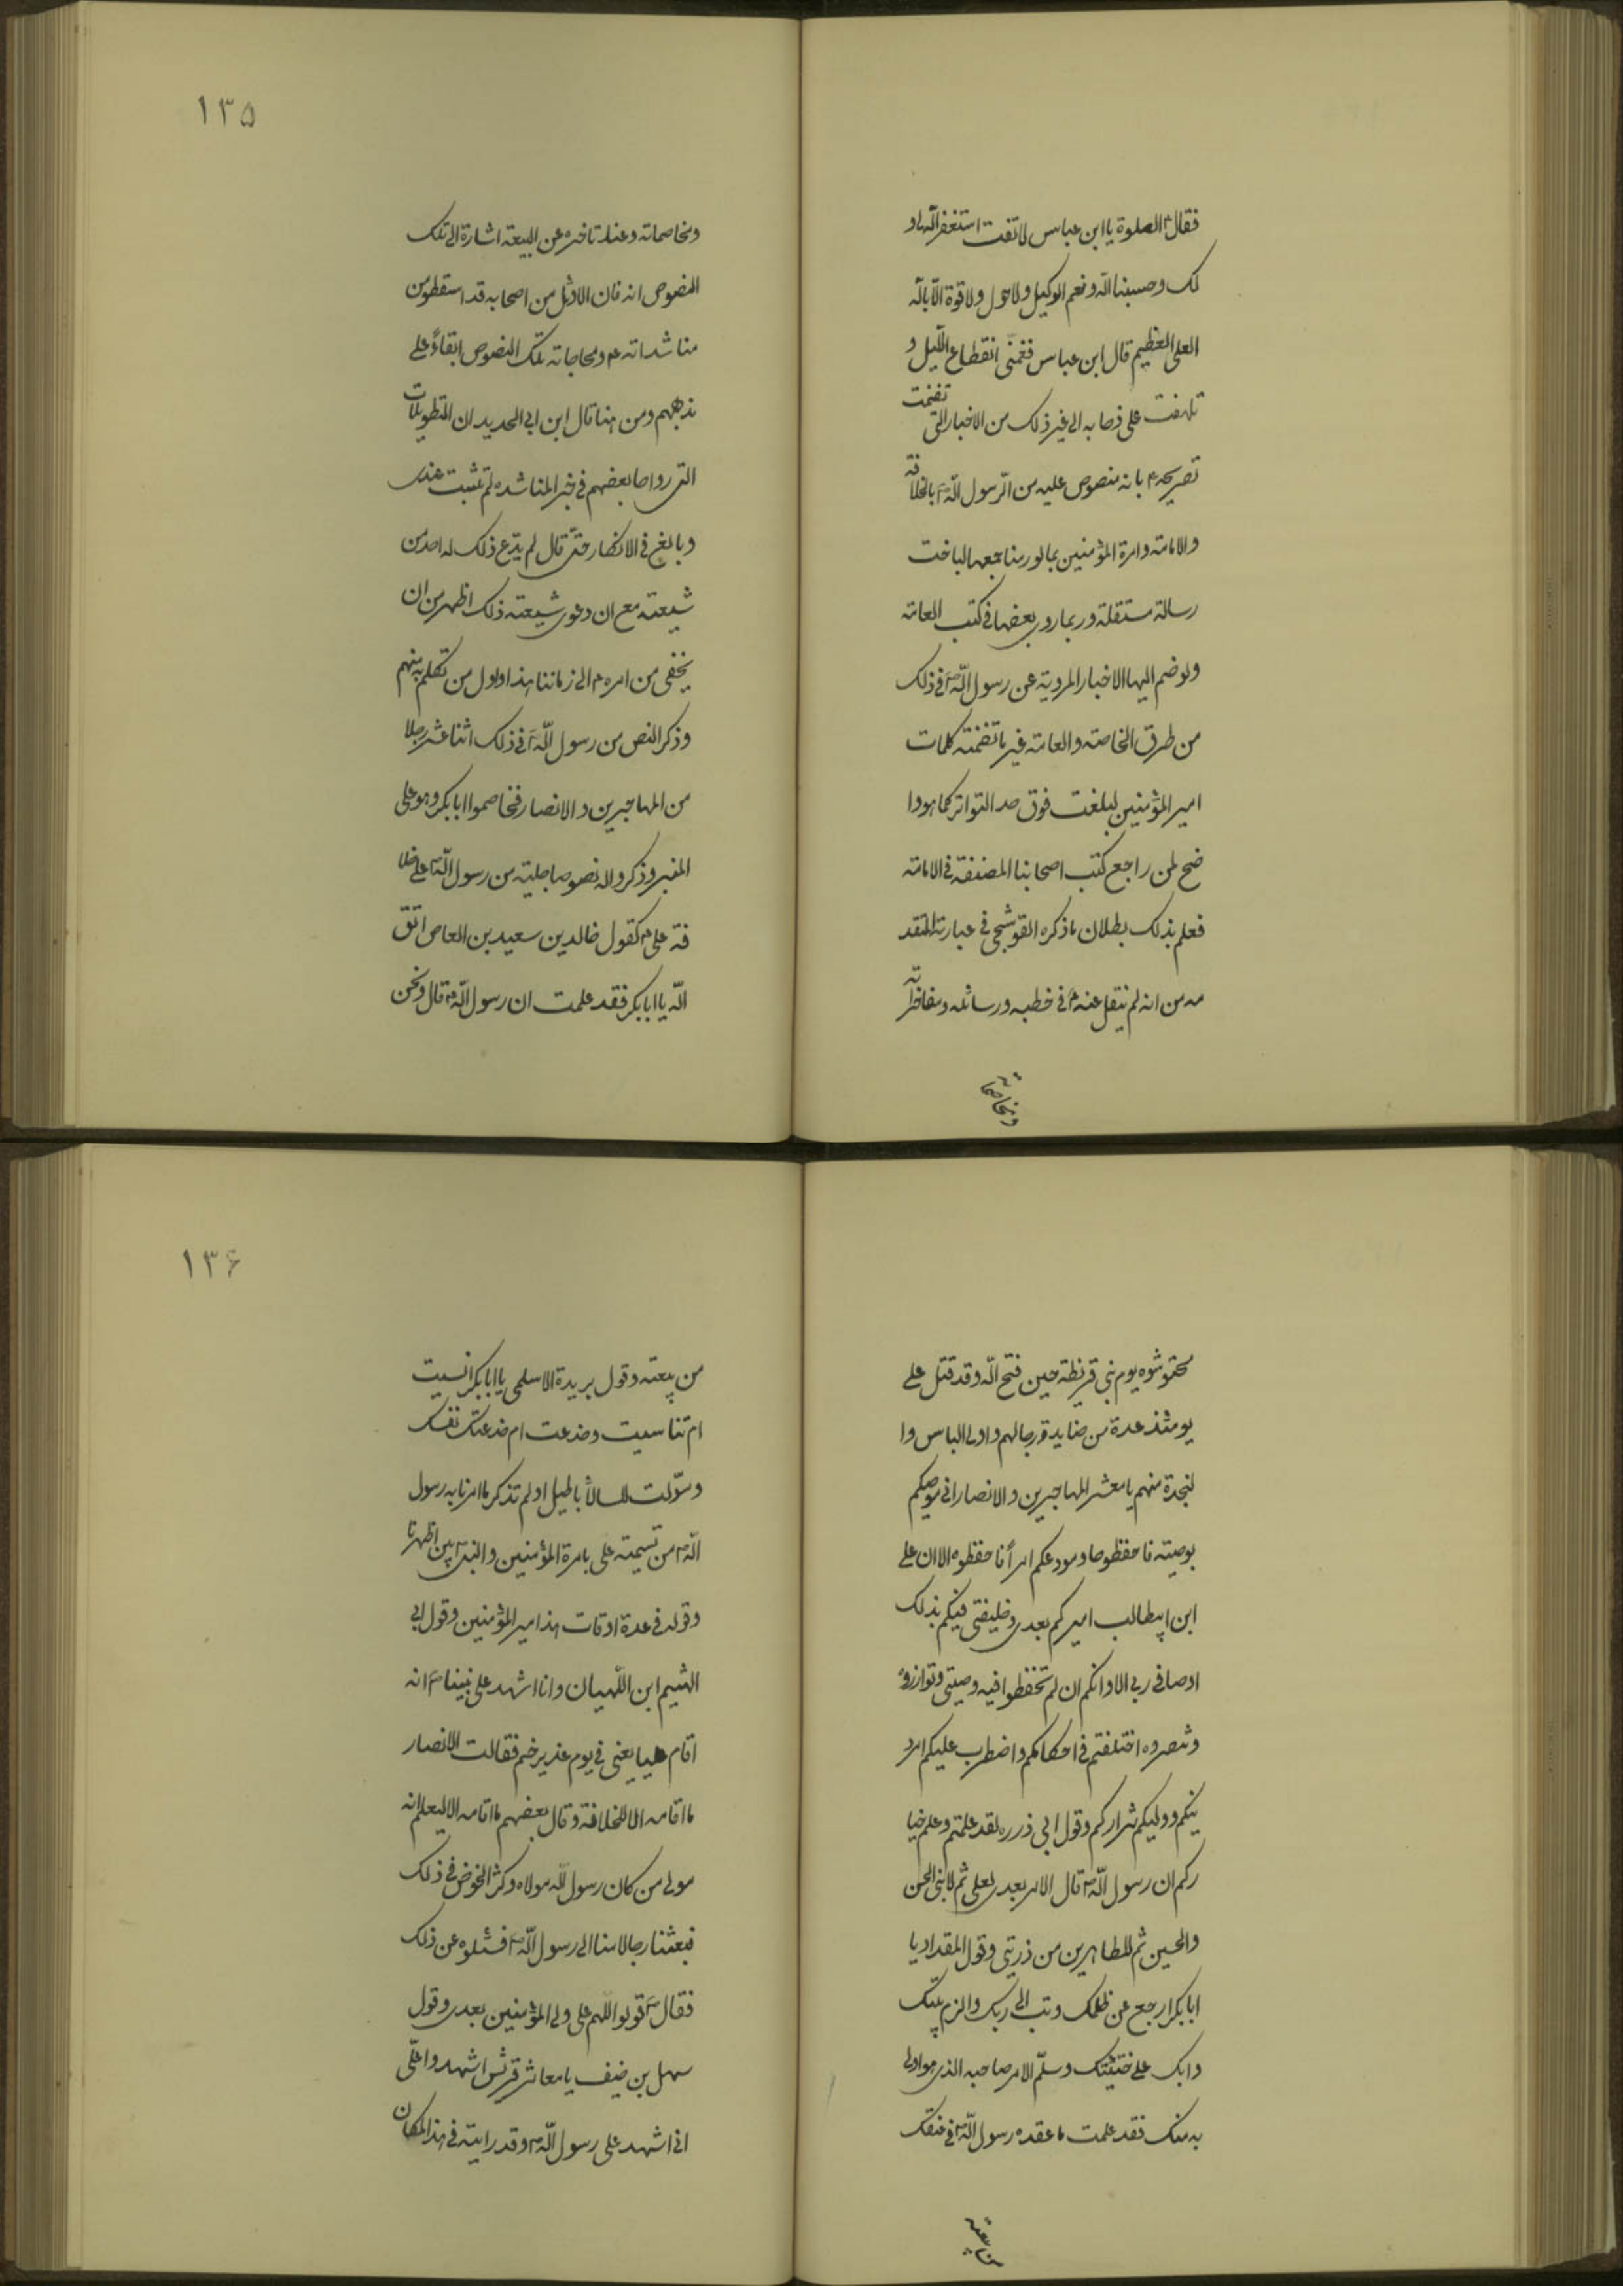 فقال ع الصلوة يا ابن عباس لا تفت استغفر الله لى و
لك وحسبنا الله ونعم الوكيل ولا حول ولا قوة الا بالله
العلى العظيم قال ابن عباس فغمنى انقطاع الليل و
تلهفت على ذهابه الى غير ذلك من الاخبار التى تضمنت
تصريحه ع بانه منصوص عليه من الرسول الله ص بالخلافة
والامامة وامرة المؤمنين بما لو رمنا جمعها لباخت
رسالة مستقلة وربما روى بعضها فى كتب العامة
ولو ضم اليها الاخبار المروية عن رسول الله ص فى ذلك
من طرق الخاصة والعامة غير ما تضمنته كلمات
امير المؤمنين لبلغت فوق حد التواتر كما هو وا
ضح لمن راجع كتب اصحابنا المصنفة فى الامامة
فعلم بذلك بطلان ما ذكره القوشجى فى عبارته المتقد
مه من انه لم ينقل عنه ع فى خطبه ورسائله ومفاخراته
ومخاصماته
١٣٥
ومخاصماته وعند تاخره عن البيعة اشارة الى تلك
النصوص انه فان الاوئل من اصحابه قد اسقطوا من
مناشداته ع ومحاجاته تلك النصوص ابقاءً على
مذهبهم ومن هنا قال ابن ابى الحديد ان التطويلات
التى رواها بعضهم فى خبر المناشده لم تثبت عندى
وبالغ فى الانكار حتى قال لم يدّع ذلك له احد من
شيعته مع ان دعوى شيعته ذلك اظهر من ان
يخفى من امره ع الى زماننا هذا واول من تكلم به منهم
وذكر النص من رسول الله ص فى ذلك اثنا عشر رجلا
من المهاجرين والانصار فخاصموا ابا بكر وهو على
المنبر وذكروا له نصوصا جلية من رسول الله ص على خلا
فة على ع كقول خالد بن سعيد بن العاص اتق
الله يا ابا بكر فقد علمت ان رسول الله ص قال ونحن
محتوشوه يوم بنى قريظة حين فتح الله وقد قتل على
يومئذ عدة من صناديد رجالهم واولى الباس وا
لنجدة منهم يا معشر المهاجرين والانصار انى موصيكم
بوصيته فاحفظوها ومودعكم امراً فاحفظوه الا ان على
ابن ابيطالب اميركم بعدى وخليفتى فيكم بذلك
اوصانى ربى الا وانكم ان لم تحفظوا فيه وصيتى وتوازروه
وتنصروه اختلفتم فى احكامكم واضطرب عليكم امر د
ينكم ووليكم شراركم وقول ابى ذر ره لقد علمتم وعلم خيا
ركم ان رسول الله ص قال الامر بعدى لعلى ثم لابنى الحسن
والحسين ثم للطاهرين من ذريتى وقول المقداد يا
ابا بكر ارجع عن ظلمك وتب الى ربك والزم بيتك
وابك على خطيئتك وسلّم الامر صاحبه الذى هو اولى
به منك فقد علمت ما عقده رسول الله ص فى عنقك
من بيعته
١٣۶
من بيعته وقول بريدة الاسلمى يا ابا بكر انسيت
ام تناسيت وخدعت ام خدعتك نفسك
وسوّلت لك الاباطيل اولم تذكر ما امرنا به رسول
الله ص من تسمية على بامرة المؤمنين والنبى ص بين اظهرنا
وقوله فى عدة اوقات هذا امير المؤمنين وقول ابى
الهثيم ابن التيهان وانا اشهد على نبينا ص انه
اقام عليا يعنى فى يوم غدير خم فقالت الانصار
ما اقامه الا للخلافة وقال بعضهم ما اقامه الا ليعلم انه
مولى من كان رسول الله مولاه وكثر الخوض فى ذلك
فبعثنا رجالا منا الى رسول الله ص فسئلوه عن ذلك
فقال ص قولوا اللهم على ولى المؤمنين بعدى وقول
سهل بن حنيف يا معاشر قريش اشهدوا علّى
انى اشهد على رسول الله ص وقد رايته فى هذا المكان